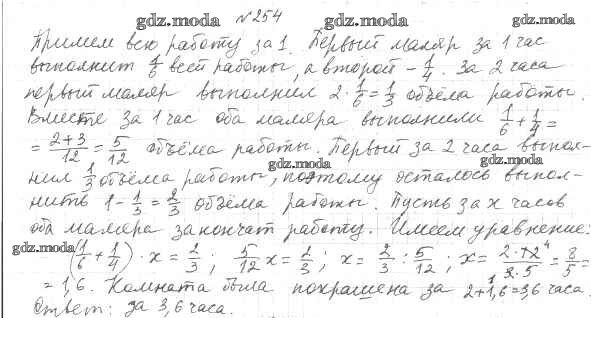 gdz.moda №254 gdz.moda gdz.moda
Примем всю работу за 1. Первый маляр за 1 час
выполнит 1/6 всей работы, а второй - 1/4. За 2 часа
первый маляр выполнил 2 · 1/6 = 1/3 объёма работы.
Вместе за 1 час оба маляра выполнили 1/6 + 1/4 =
= (2+3)/12 = 5/12 объёма работы. Первый за 2 часа выпол-
gdz.moda gdz.moda
нил 1/3 объёма работы, поэтому осталось выпол-
нить 1 - 1/3 = 2/3 объёма работы. Пусть за x часов
оба маляра закончат работу. Имеем уравнение:
gdz.moda (1/6 + 1/4) · x = 2/3; 5/12 x = 2/3; x = 2/3 : 5/12; x = (2·12⁴)/(3·5) = 8/5 =
= 1,6. Комната была покрашена за 2+1,6=3,6 часа.
Ответ: за 3,6 часа.